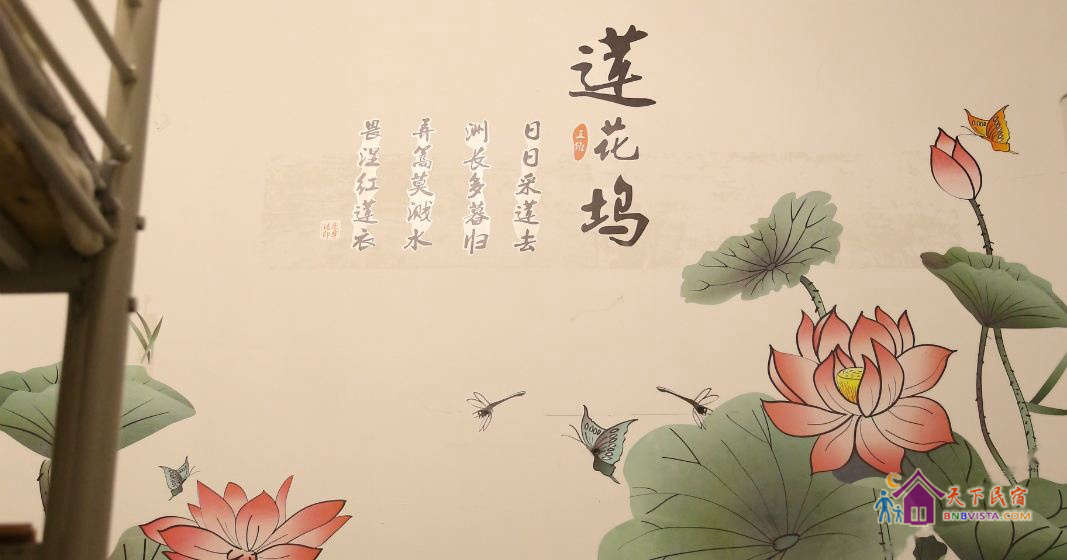 莲花坞
王维
日日采莲去
洲长多暮归
弄篙莫溅水
畏湿红莲衣
天下民宿
BNBVISTA.COM